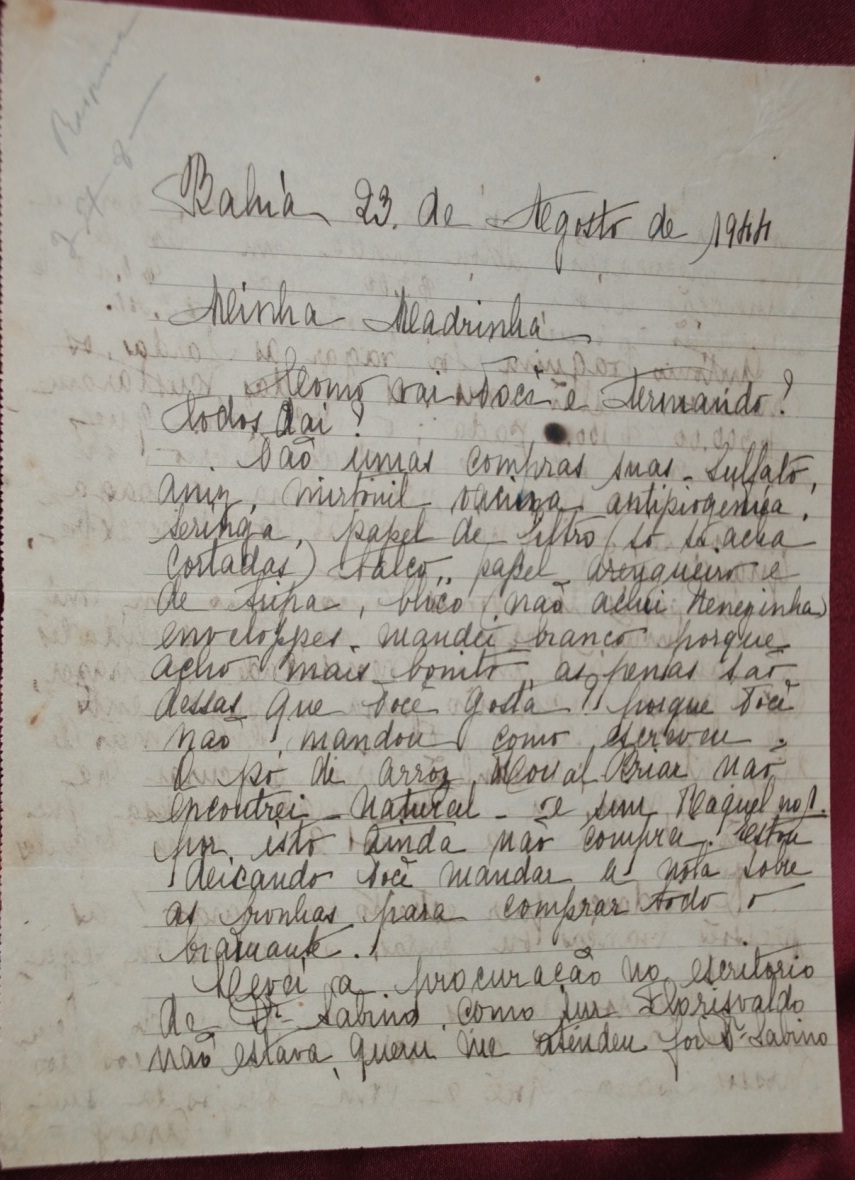 Bahia 23. de Agosto de 1944
Minha Madrinha
Como vai você e Fernando?
todos dai?
Vão umas compras suas. Sulfato,
aniz, mirtonil vacina antipiogenica,
seringa, papel de filtro (só se acha
cortadas) talco, papel e
de , bloco, não achei
enveloppes. mandei branco porque
acho mais bonito, as penas são
dessas que você gosta? porque você
não mandou como escreveu.
O pó de arroz não
encontrei Natural e sim Raquel nº 1.
por isto ainda não comprei. Estou
deicando você mandar a nota sobre
as fronhas para comprar todo o
bramante.
Levei a procuração no escritorio
de Dr. Sabino, como Florisvaldo
não estava, quem me atendeu foi Dr. Sabino